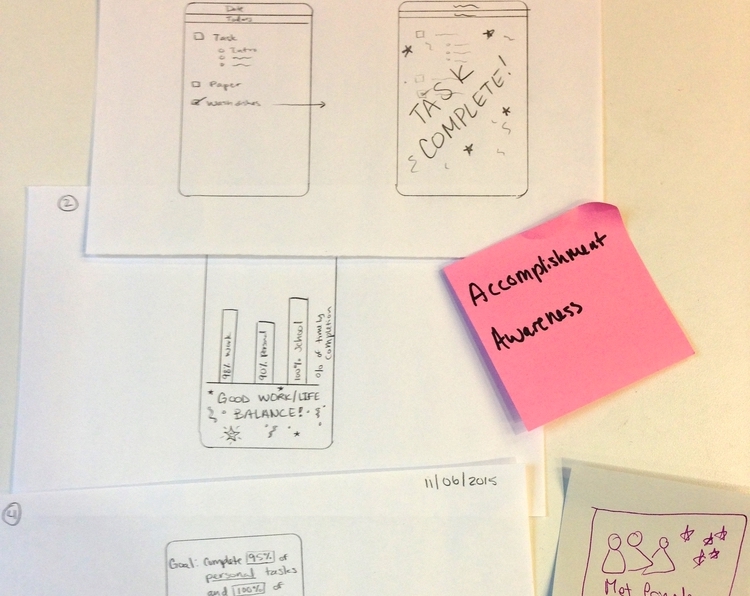 Date
Today
Task
Intro
Paper
Wash dishes
TASK
COMPLETE!
2
98% Work
90% Personal
100% School
% of timely
completion
GOOD WORK/LIFE
BALANCE!
Accomplishment
Awareness
11/06/2015
4
Goal: Complete 95% of
personal tasks
and 100% of
Met People